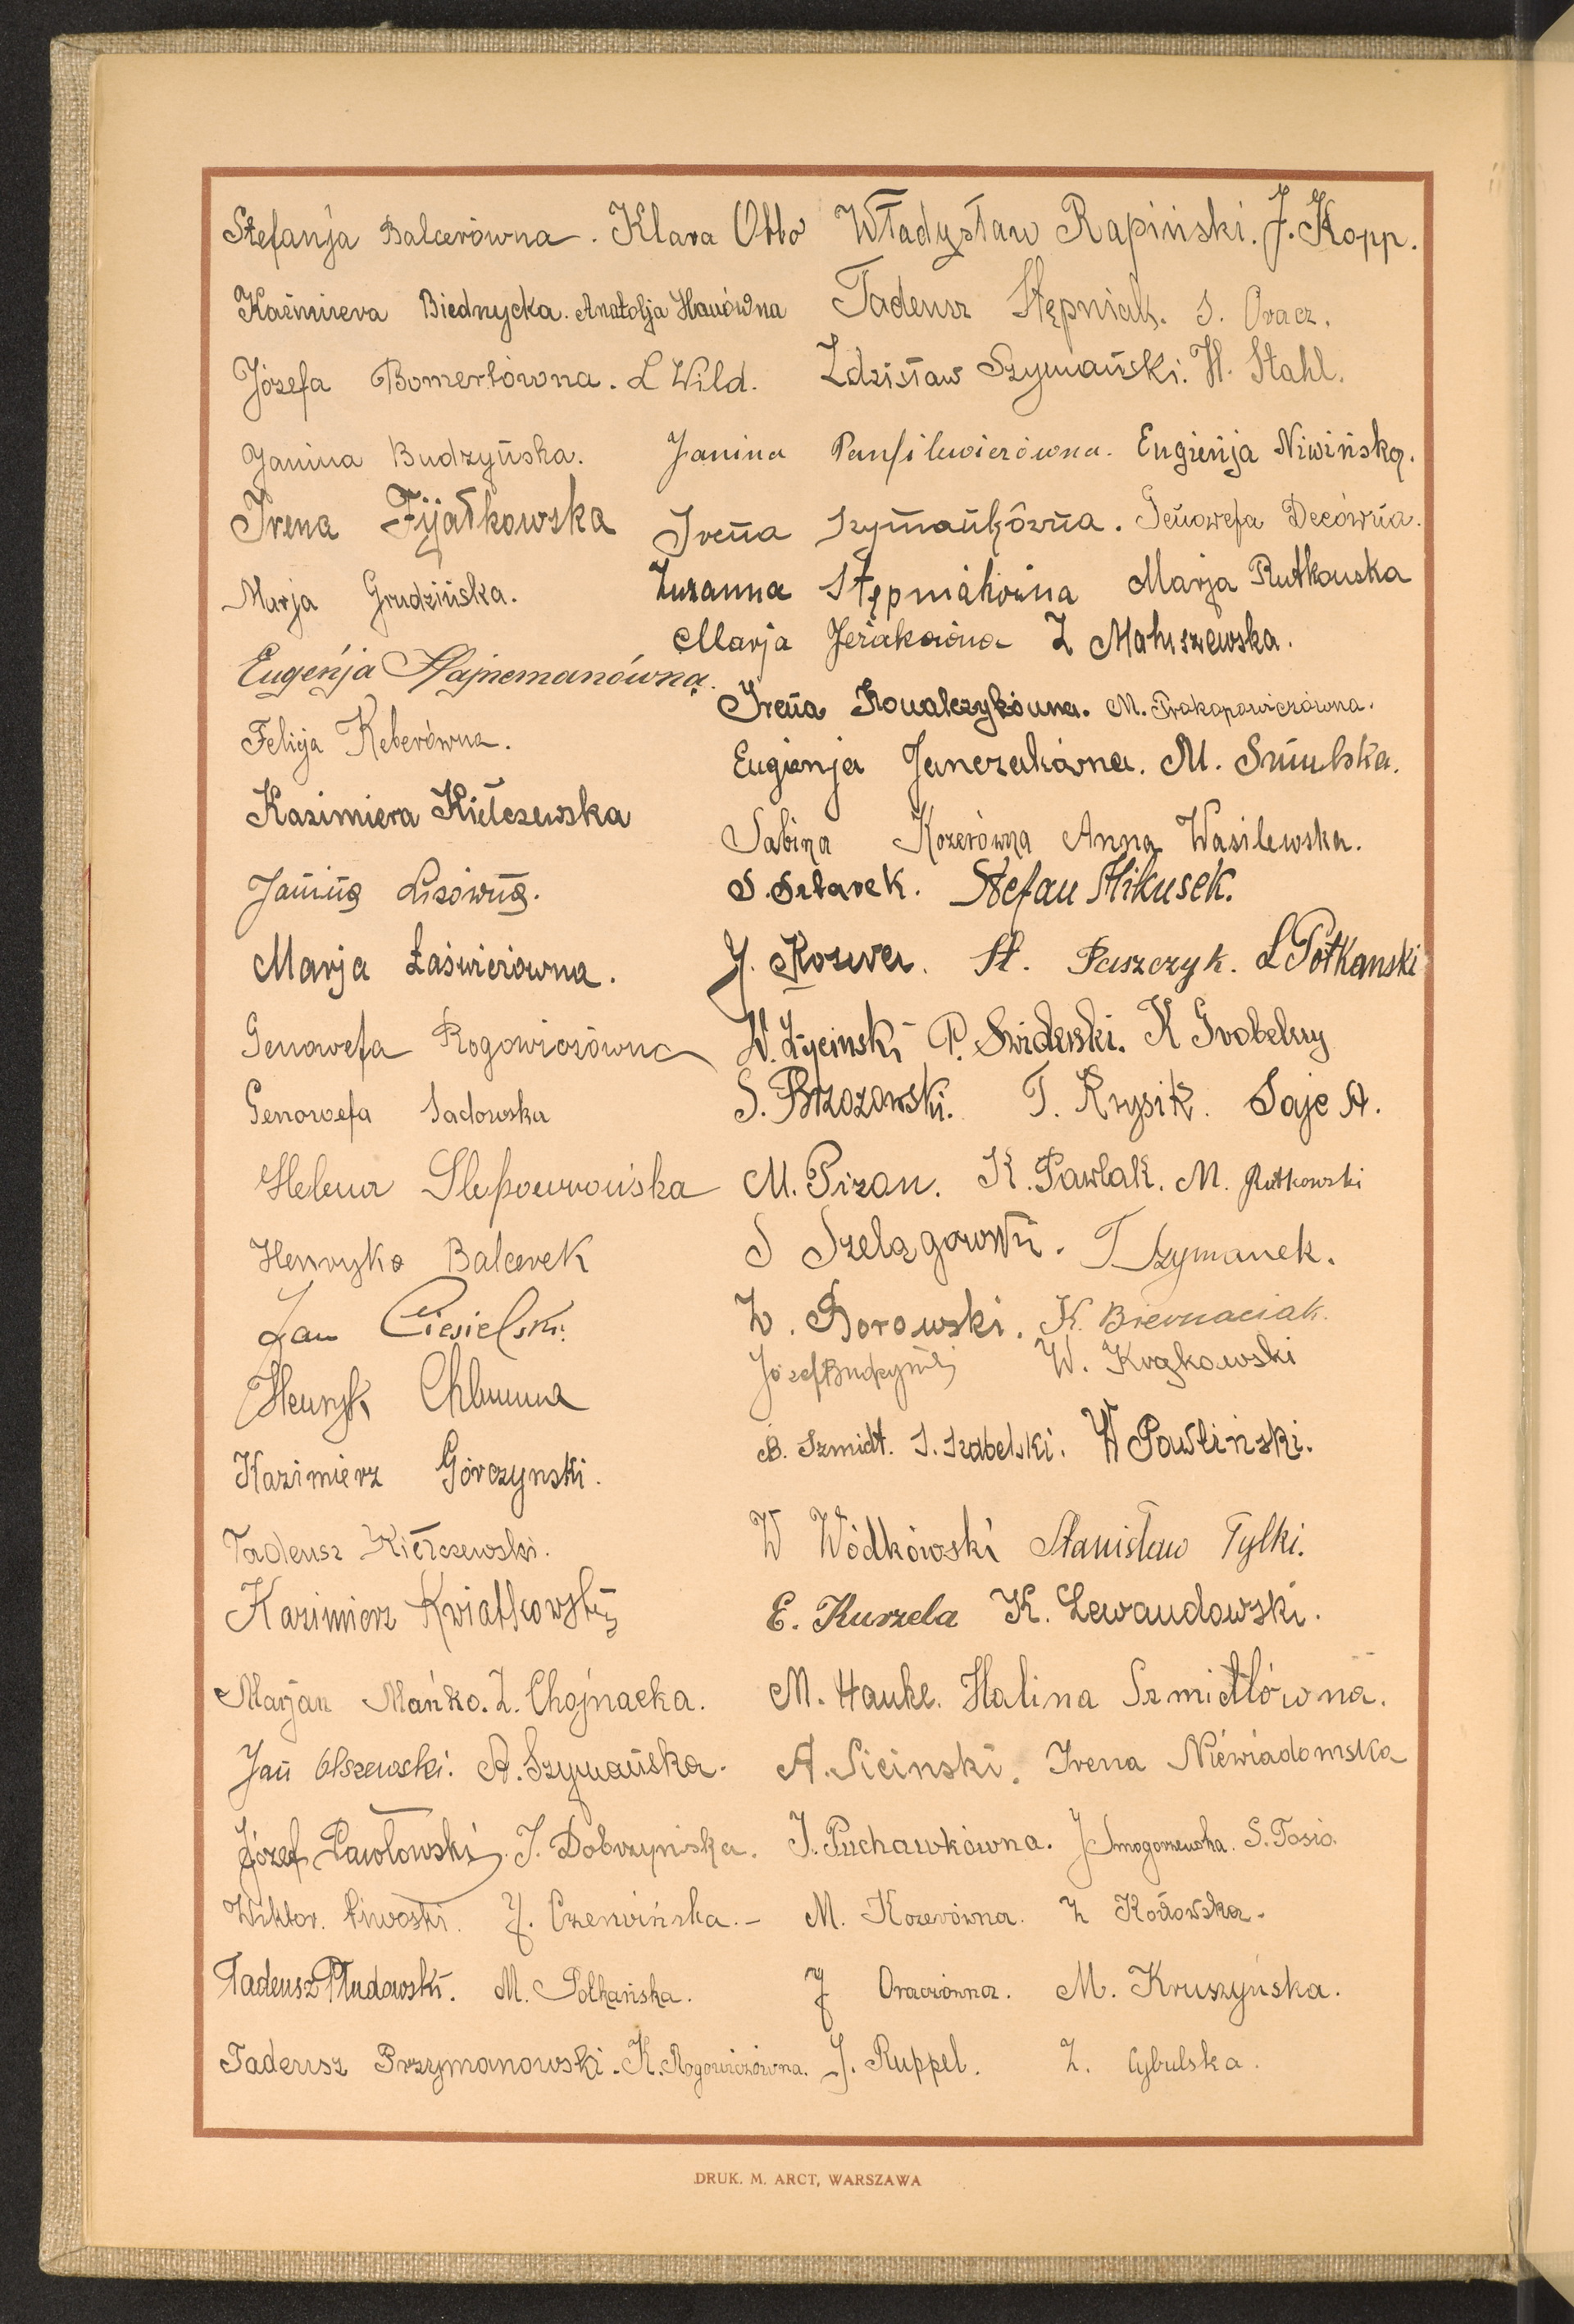 Stefanja Balcerówna. Klara Otto Władysław Rapiński. J. Kopp.
Kaźmiera Biednycka. Anatolja Hauówna Tadeusz Stępniak. S. Oracz.
Józefa Bomertówna. L Wild. Zdzisław Szymański. H. Stahl.
Janina Budzyńska. Janina Panfilewiczówna. Eugienja Niwińska.
Irena Fijałkowska Irena Szymańkówna. Genowefa Decówna.
Marja Grudzińska. Zuzanna Stępniakówna Marja Rutkowska
Marja Jeziakówna Z Matuszewska.
Eugenja Hajnemanówna.
Irena Kowalczykówna. M. Prokopowiczówna.
Felicja Keberówna.
Eugienja Janczakówna. M. Smulska.
Kazimiera Kiełczewska
Sabina Kozerówna Anna Wasilewska.
Janina Lisówna. S. Sztarek. Stefan Mikusek.
Marja Łaświerówna. J. Kozera. St. Paszczyk. L Potkanski
Genowefa Rogowiczówna W. Życinski P. Swiderski. K Grobelny
Genowefa Sadowska S. Brzozowski. T. Krysik. Saje A.
Helena Ślepowrońska M. Pizon. K. Pawlak. M. Rutkowski
Henryka Balcerek S Szelągowski. T Szymanek.
Jan Ciesielski. Z. Borowski. K. Biernaciak.
Józef W. Krajkowski
Henryk Chlumna
B. Szmidt. S. Szabelski. W Pawliński.
Kazimierz Górczynski.
Tadeusz Kiełczewski. W Wódkowski Stanisław Tylki.
Kazimierz Kwiatkowski E. Kurzela K. Lewandowski.
Marjan Mańko. Z. Chojnacka. M. Hauke. Halina Szmidtówna.
Jan Olszewski. A. Szymańska. A. Sicinski. Irena Niewiadomska
Józef Pawłowski. J. Dobrzyńska. J. Puchawkówna. J Smogorzewska. S. Tosio.
Wiktor. Piwoski. J. Czerwińska. - M. Kozerówna. Z Kozłowska.
Tadeusz Płudowski. M. Potkańska. J Oraczówna. M. Kruszyńska.
Tadeusz Przymanowski. K. Rogowiczówna. J. Ruppel. Z. Cybulska.
DRUK. M. ARCT, WARSZAWA